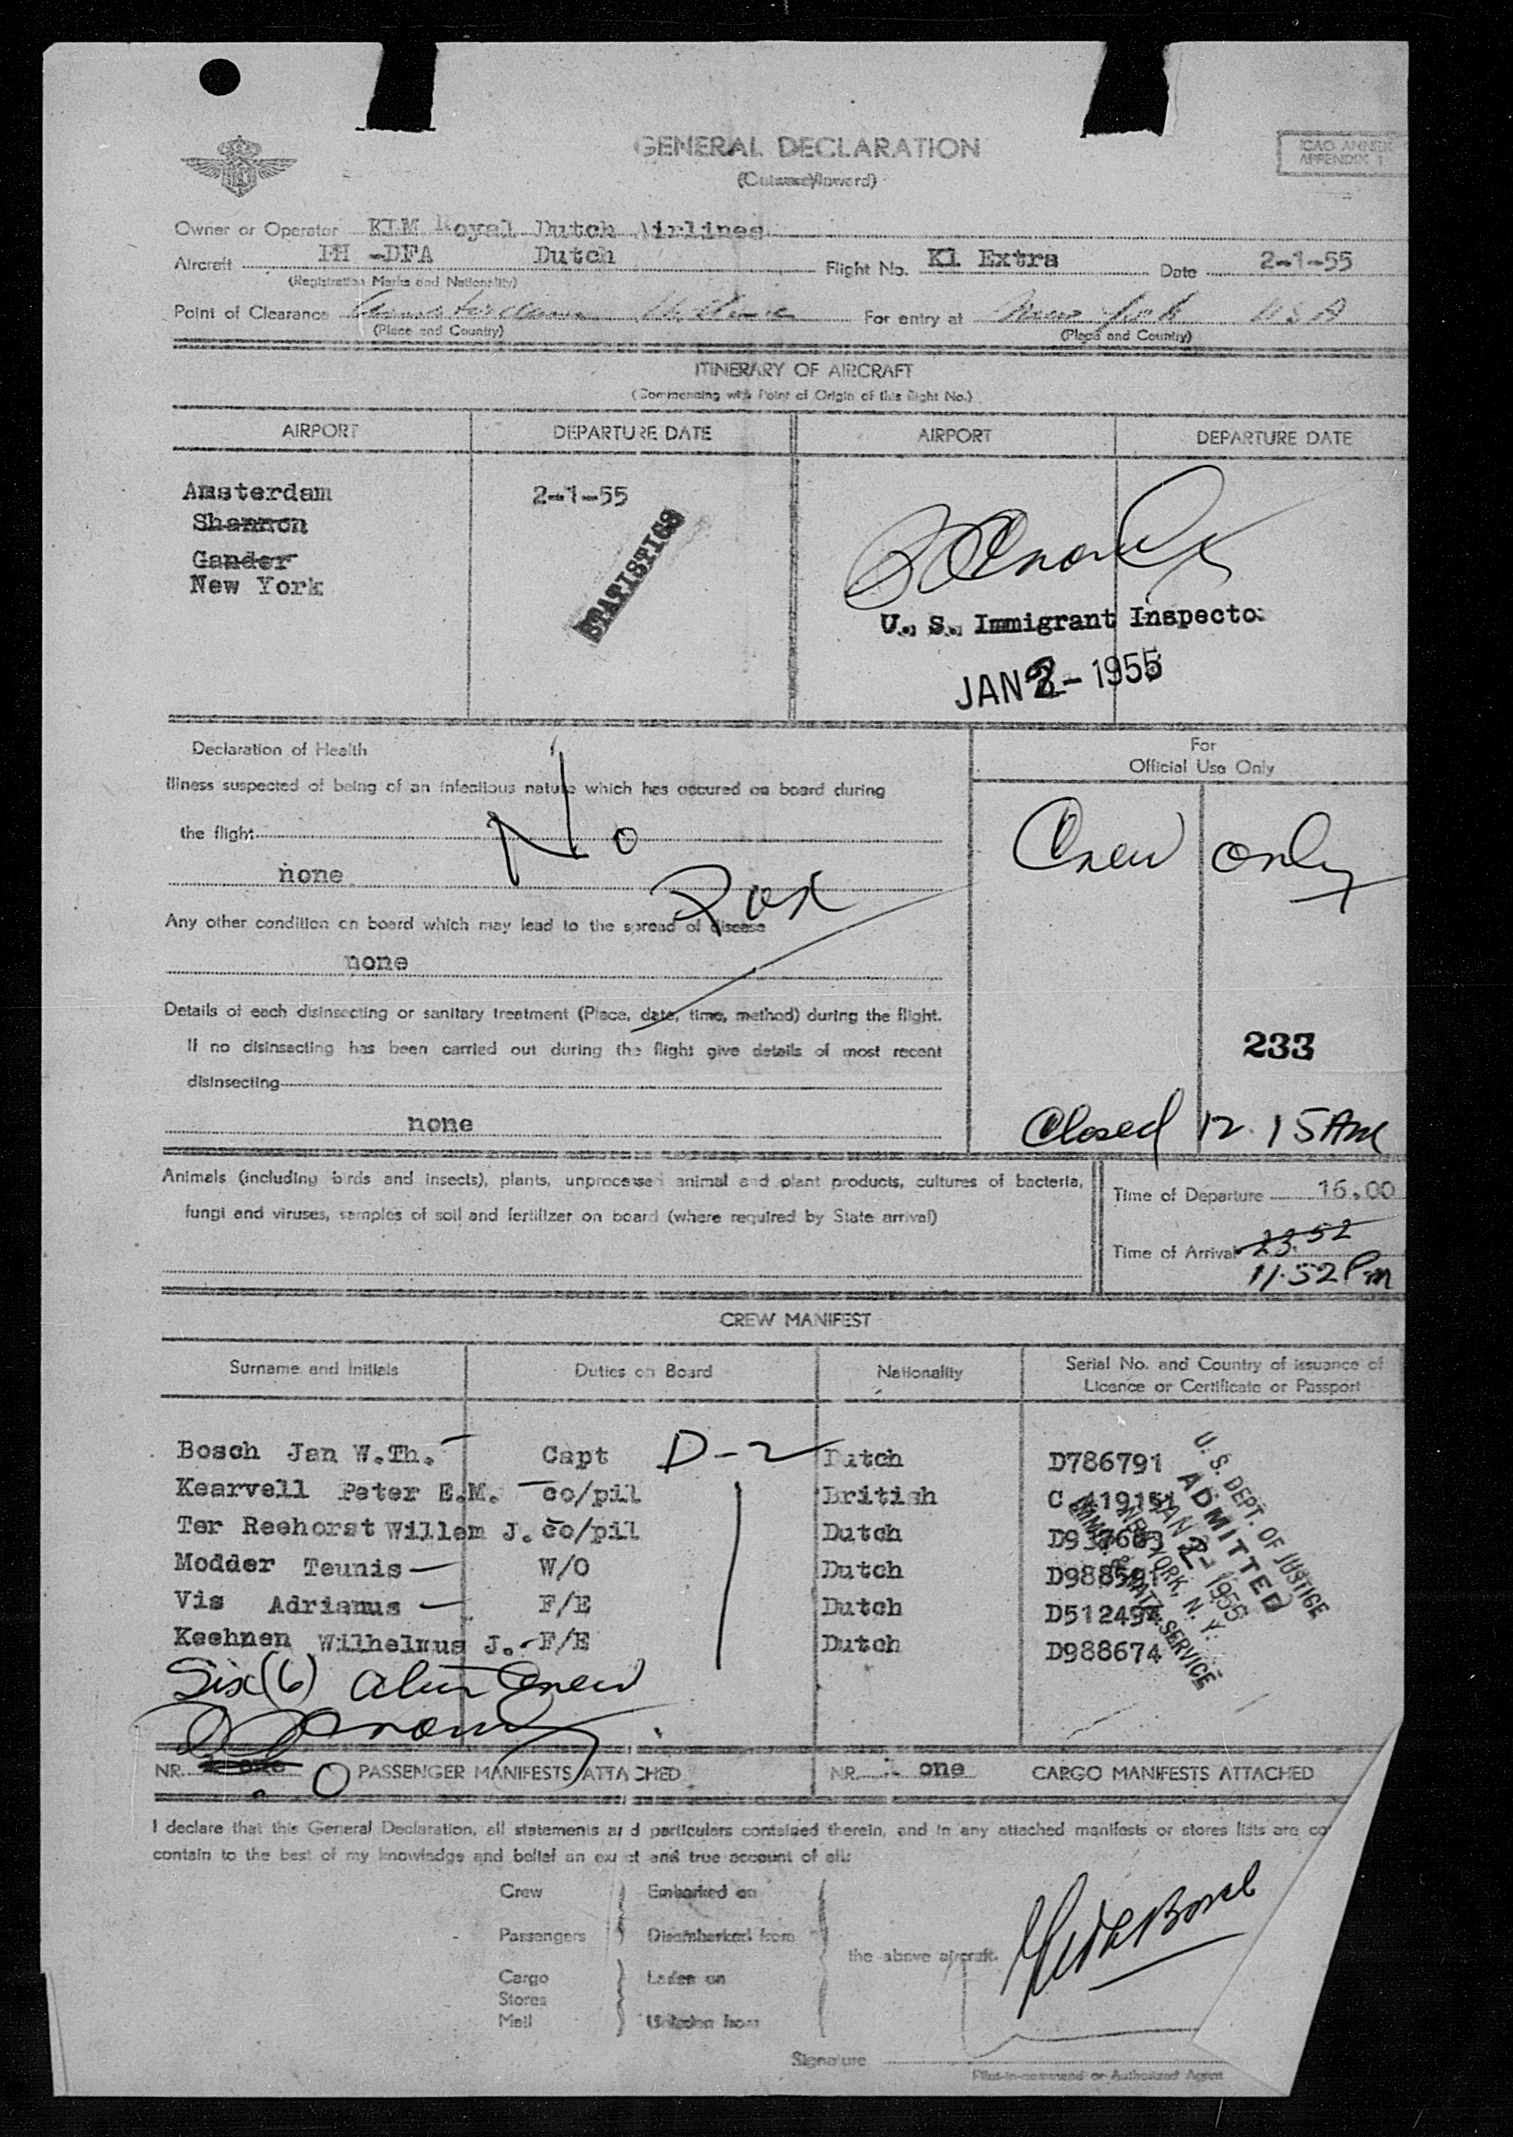 GENERAL DECLARATION
(Outward/Inward)
ICAO ANNEX
APPENDIX 1
Owner or Operator KLM Royal Dutch Airlines
Aircraft PH -DFA Dutch Flight No. Kl Extra Date 2-1-55
(Registration Marks and Nationality)
Point of Clearance Amsterdam Holland For entry at New York USA
(Place and Country) (Place and Country)
ITINERARY OF AIRCRAFT
(Commencing with Point of Origin of this flight No.)
AIRPORT DEPARTURE DATE AIRPORT DEPARTURE DATE
Amsterdam 2-1-55
Shannon
Gander
New York
STATISTICS
U. S. Immigrant Inspector
JAN 2- 1955
Declaration of Health
For
Official Use Only
Illness suspected of being of an infectious nature which has occured on board during
the flight No
none
Crew only
Pox
Any other condition on board which may lead to the spread of disease
none
Details of each disinsecting or sanitary treatment (Place, date, time, method) during the flight.
If no disinsecting has been carried out during the flight give details of most recent
disinsecting
233
none
Closed 12.15 AM
Animals (including birds and insects), plants, unprocessed animal and plant products, cultures of bacteria,
fungi and viruses, samples of soil and fertilizer on board (where required by State arrival)
Time of Departure 16.00
Time of Arrival 23.52
11.52 Pm
CREW MANIFEST
Surname and Initials Duties on Board Nationality Serial No. and Country of issuance of
Licence or Certificate or Passport
Bosch Jan W.Th. Capt D-2 Dutch D786791
Kearvell Peter E.M. co/pil British C 419151
Ter Reehorst Willem J. co/pil Dutch
Modder Teunis W/O Dutch
Vis Adrianus F/E Dutch D512494
Keehnen Wilhelmus J. F/E Dutch D988674
U. S. DEPT. OF JUSTICE
ADMITTED
JAN 2- 1955
NEW YORK, N. Y.
SERVICE
Six (6) alien crew
NR. one 0 PASSENGER MANIFESTS ATTACHED NR one CARGO MANIFESTS ATTACHED
I declare that this General Declaration, all statements and particulars contained therein, and in any attached manifests or stores lists are co
contain to the best of my knowledge and belief an exact and true account of all:
Crew Embarked on
Passengers Disembarked from
the above aircraft.
Cargo Laden on
Stores
Mail Unladen from
Signature
Pilot-in-command or Authorized Agent